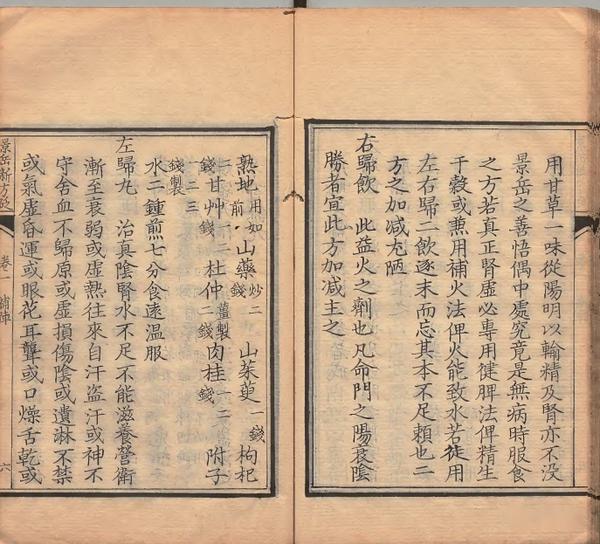 用甘草一味從陽明以輸精及腎亦不没
景岳之善悟偶中處究竟是無病時服食
之方若真正腎虛必專用健脾法俾精生
于穀或兼用補火法俾火能致水若徒用
左右歸二飲逐末而忘其本不足賴也二
方之加減尤陋
右歸飲 此益火之劑也凡命門之陽衰陰
勝者宜此方加減主之
熟地用如前山藥炒二錢山茱萸一錢枸杞
二錢甘艸一二錢杜仲薑製二錢肉桂一二錢附子
製一二三錢
水二鍾煎七分食遠溫服
左歸丸 治真陰腎水不足不能滋養營衛
漸至衰弱或虛熱往來自汗盜汗或神不
守舍血不歸原或虛損傷陰或遺淋不禁
或氣虛昏運或眼花耳聾或口燥舌乾或
景岳新方砭 卷一 補陣 六